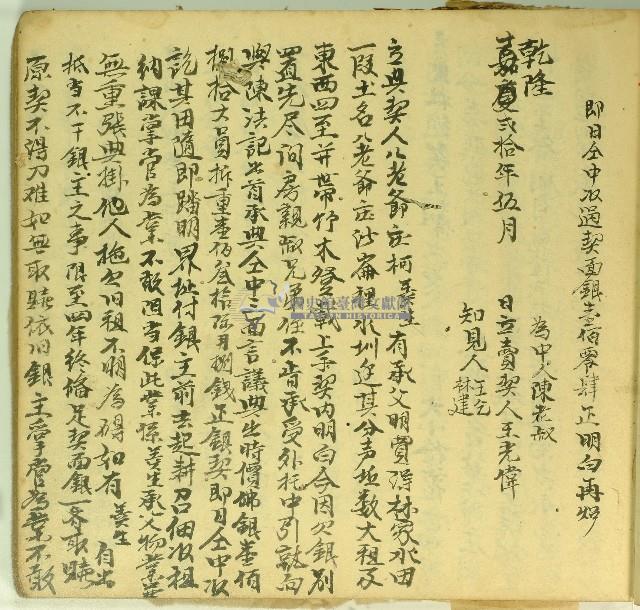 即日仝中收過契面銀壹佰零肆正明白再炤
為中人陳老叔
日立賣契人王光偉
知見人王乞
林建
乾隆
嘉慶貳拾年伍月
立典契人八老爺庄柯善生有承父明買得林家水田
一段土名八老爺庄
東西四至并帶竹木登載上手契內明白今因欠銀別
置先尽問房親叔兄弟姪不肯承受外托中引就向
與陳法記出首承典仝中三面言議典出時價佛銀壹佰
捌拾大員折重壹佰
訖其田隨即踏明界址付銀主前去起耕召佃收租
納課掌管為業不敢阻當保此業係善生承父物業並
無重張典掛他人拖欠旧租不明為碍如有善生自出
抵當不干銀主之事限至四年終備足契面銀一齊取贖
原契不得刁难如無取贖依旧銀主掌管為業不敢
國史館臺灣文獻館
TAIWAN HISTORICA